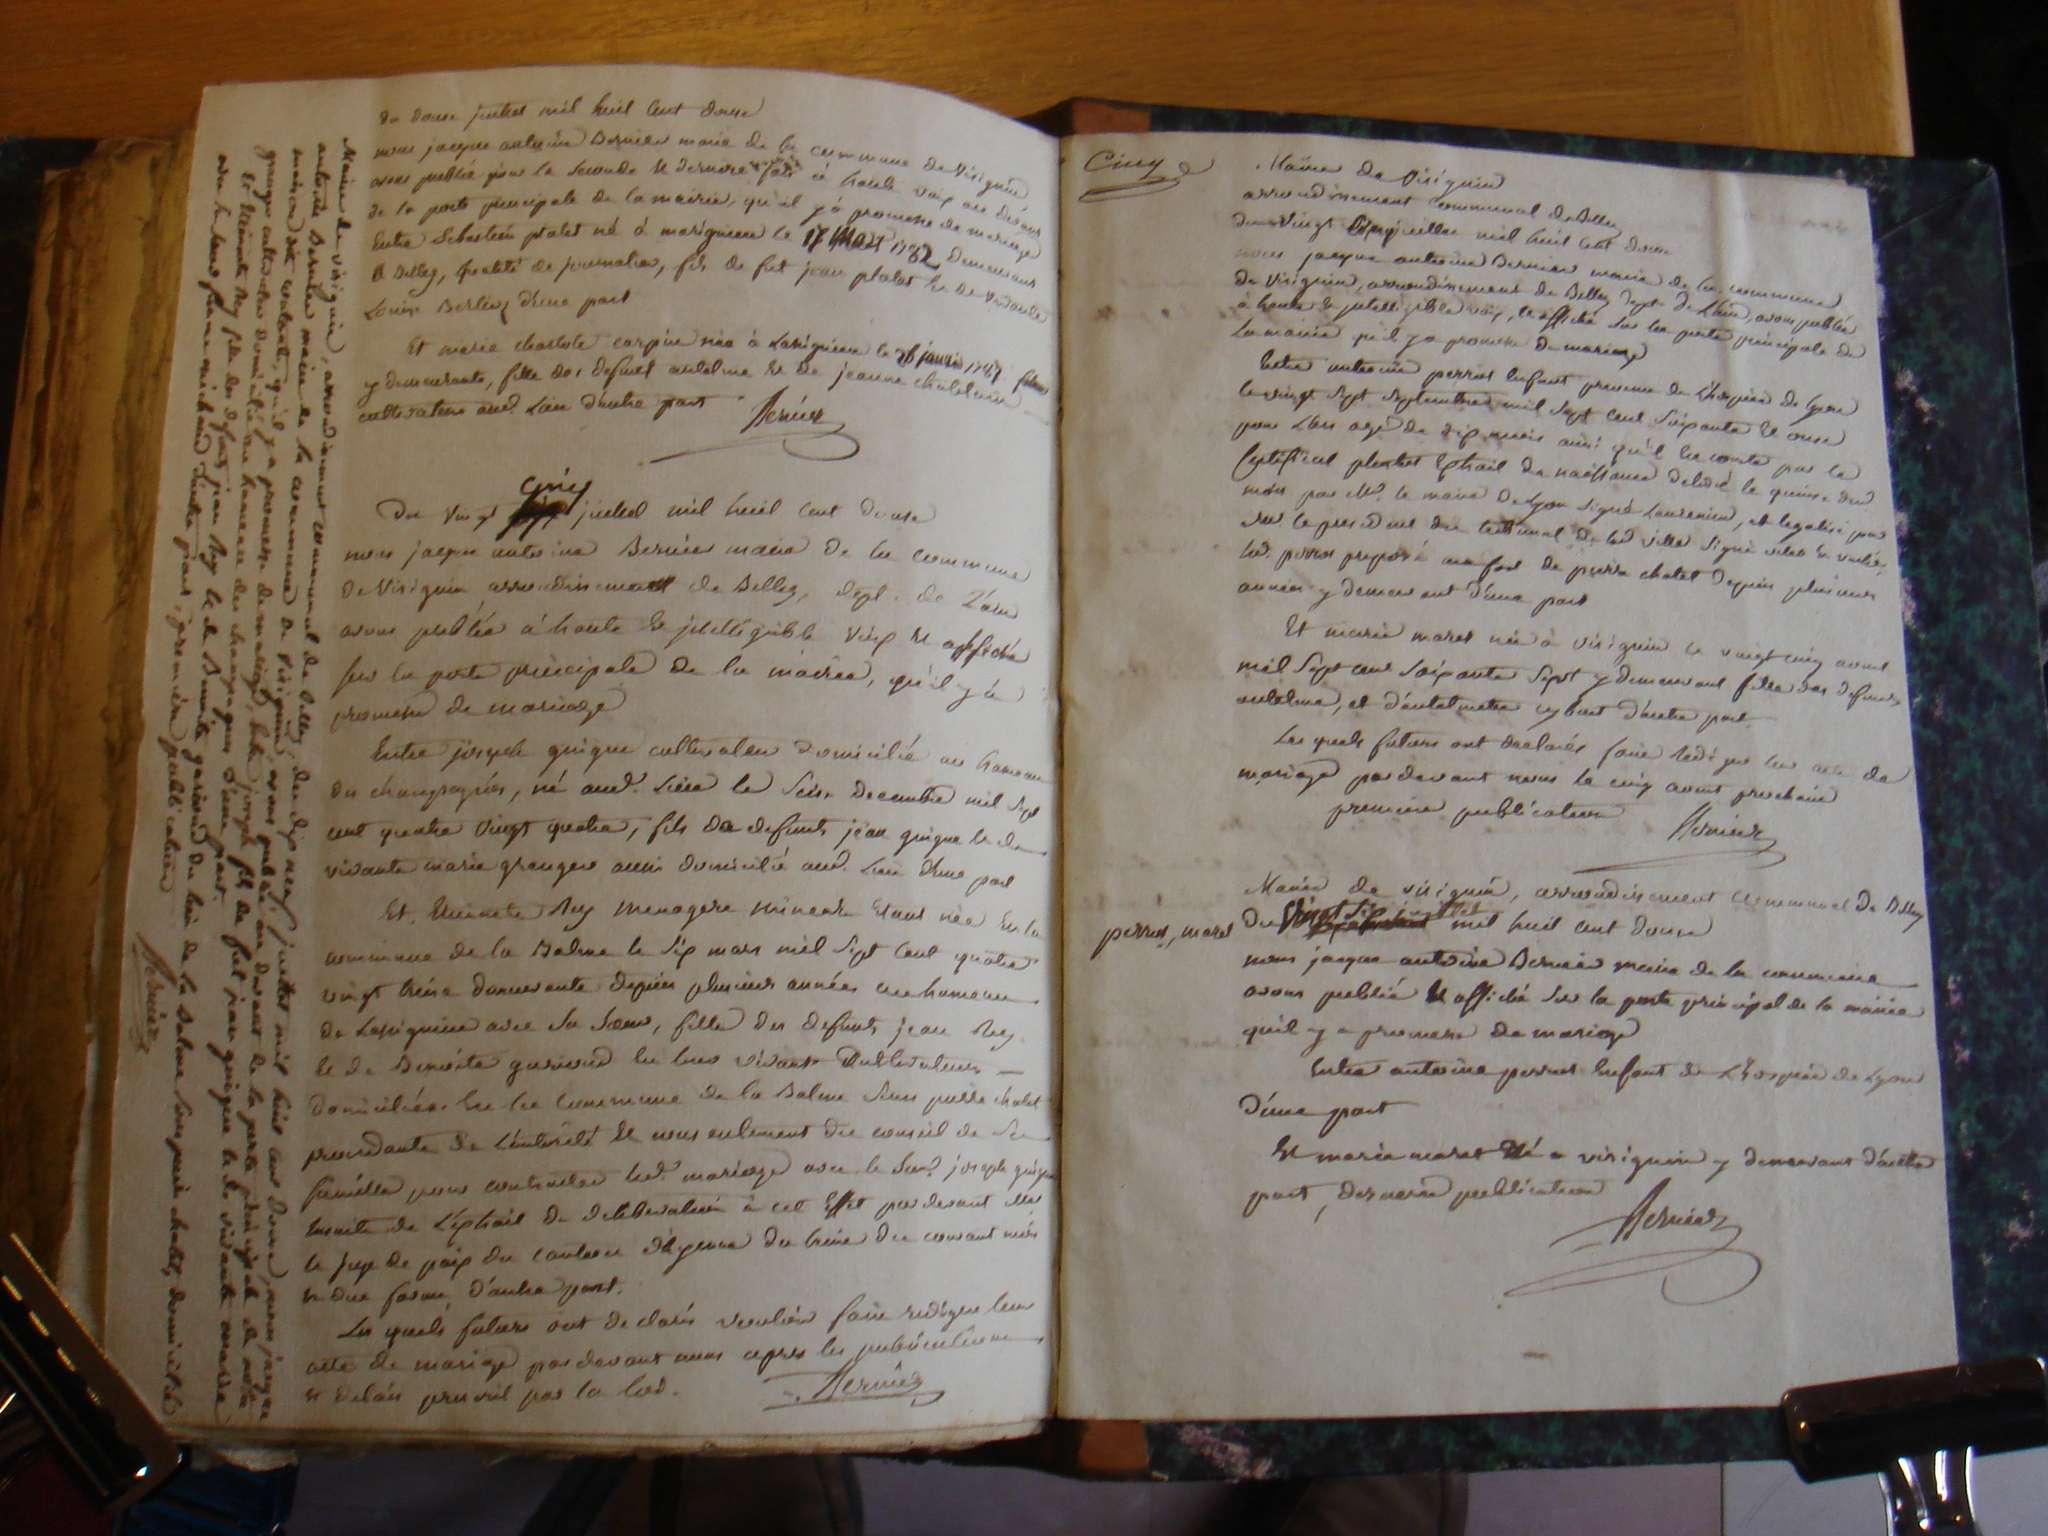 du douse juillet mil huit cent douse
nous jacque antoine Bernier maire de la commune de Virignin
avons publié pour la seconde et derniere fois à haute voix au devant
de la porte principale de la mairie, qu'il y a promesse de mariage
Entre Sébastien platet né à marignieu le 17 Mars 1782 demeurant
à Belley, qualité de journalier, fils de fut jean platet et de vivante
Louise d'une part
Et marie charlote carpin née à le 26 janvier 1787
y demeurante, fille des defunts antelme et de jeanne
cultivateurs aud. Lieu d'autre part
Bernier
cinq
Du Vingt juillet mil huit cent douse
nous jacque antoine Bernier maire de la commune
de Virignin arrondissement de Belley, dépt. de L'ain
avons publiée à haute et jntelligible voix et affiché
sur la porte principale de la mairie, qu'il y à
promesse de mariage
Entre joseph guigue cultivateur domicilié au hameau
des champagnes, né aud. Lieu le Seise decembre mil sept
cent quatre vingt quatre, fils de defunts jean guigue et de
vivante marie granger aussi domicilié aud. Lieu d'une part
Et. Etiennete Rey menagere mineure Etant née En la
commune de la Balme le Six mars mil sept Cent quatre
vingt treise demeurante depuis plusieurs années au hameau
de avec Sa Soeur, fille des defunts jean Rey
et de Benoite garioud en leur vivant Cultivateurs
domiciliés En la Commune de la Balme Sous pierre chatel
procedante de L'autorité et du conseil de Sa
famille pour contracter led. mariage avec le Sus.d joseph guigue
de L'extrait de deliberation à cet Effet par devant Mr
le juge de paix du canton du treise du courant mois
et due forme, d'autre part.
Les quels futurs ont declarés vouloir faire rediger leur
acte de mariage par devant nous apres les publications
et delais prescrit par la loi.
Bernier
Maire de virignin, arrondissement communal de Belley du dix neuf juillet mil huit cent douse, nous jacque
antoine Bernier maire de la commune de Virignin avons publié au devant de la porte principale de notre
maison dite comunale, qu'il y a promesse de mariage, Entre joseph fils de fut jean guigue et de vivante marie
granger cultivateur domicilié au hameau des champagnes d'une part
Et Etiennete Rey fille des defunts jean Rey et de Benoite garioud du lieu de la Balme sous pierre chatel, domiciliée
d'autre part, premiere publication
Bernier
Cinq
Mairie de Virignin
arrondissement Communal de Belley
du Vingt juillet mil huit cent douse
nous jacque antoine Bernier maire de la commune
de Virignin, arrondissement de Belley dept de L'ain, avons publiée
à haute et jntelligible voix, et affiché sur la porte principale de
La mairie qu'il y a promesse de mariage
Entre antoine perrus Enfant provenu de L'hospice de Lyon
le vingt sept septembre mil sept cent soixante et onse
pour Lors agé de six mois ainsi qu'il en conste par le
Certificat plustot Extrait de naissance delivré le quinse du
mois par Mr. le maire de Lyon signé et legalisé par
Mr. le president du tribunal de lad ville signé
led. perrus preposé au fort de pierre chatel depuis plusieurs
années y demeurant d'une part
Et marie maret née à virignin le vingt cinq avril
mil sept cent soixante sept y demeurant fille des defunts
antelme, et d'antelmette cybert d'autre part
Les quels futurs ont declarés faire rediger leur acte de
mariage par devant nous le cinq aout prochain
premiere publication
Bernier
perrus, maret
Mairie de virignin, arrondissement communal de Belley
du Vingt Six juillet mil huit cent douse
nous jacque antoine Bernier maire de la commune
avons publié et affiché sur la porte principal de la mairie
qu'il y a promesse de mariage
Entre antoine perrus Enfant de L'hospice de Lyon
d'une part
Et marie maret Né a virignin y demeurant d'autre
part, derniere publication
Bernier